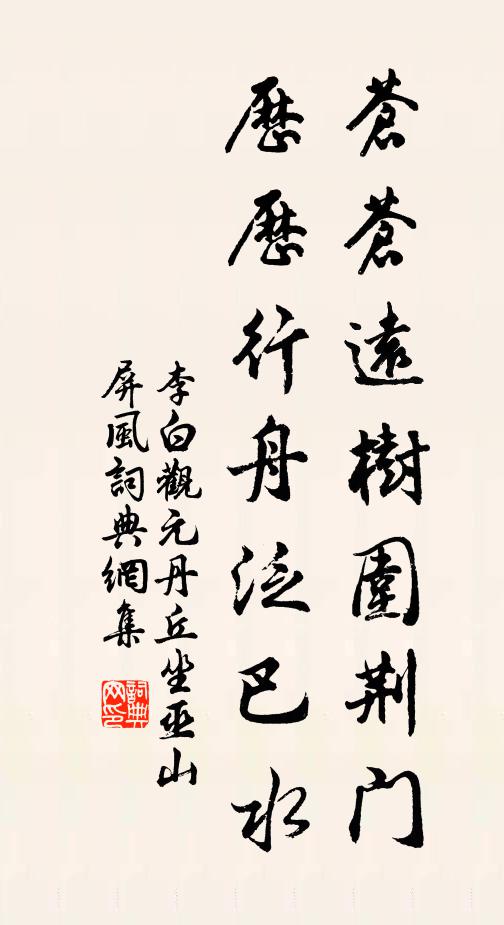 蒼蒼遠樹圍荆门
歷歷行舟泛巴水
李白觀元丹丘坐巫山
屏風詞典網集
詞典網印